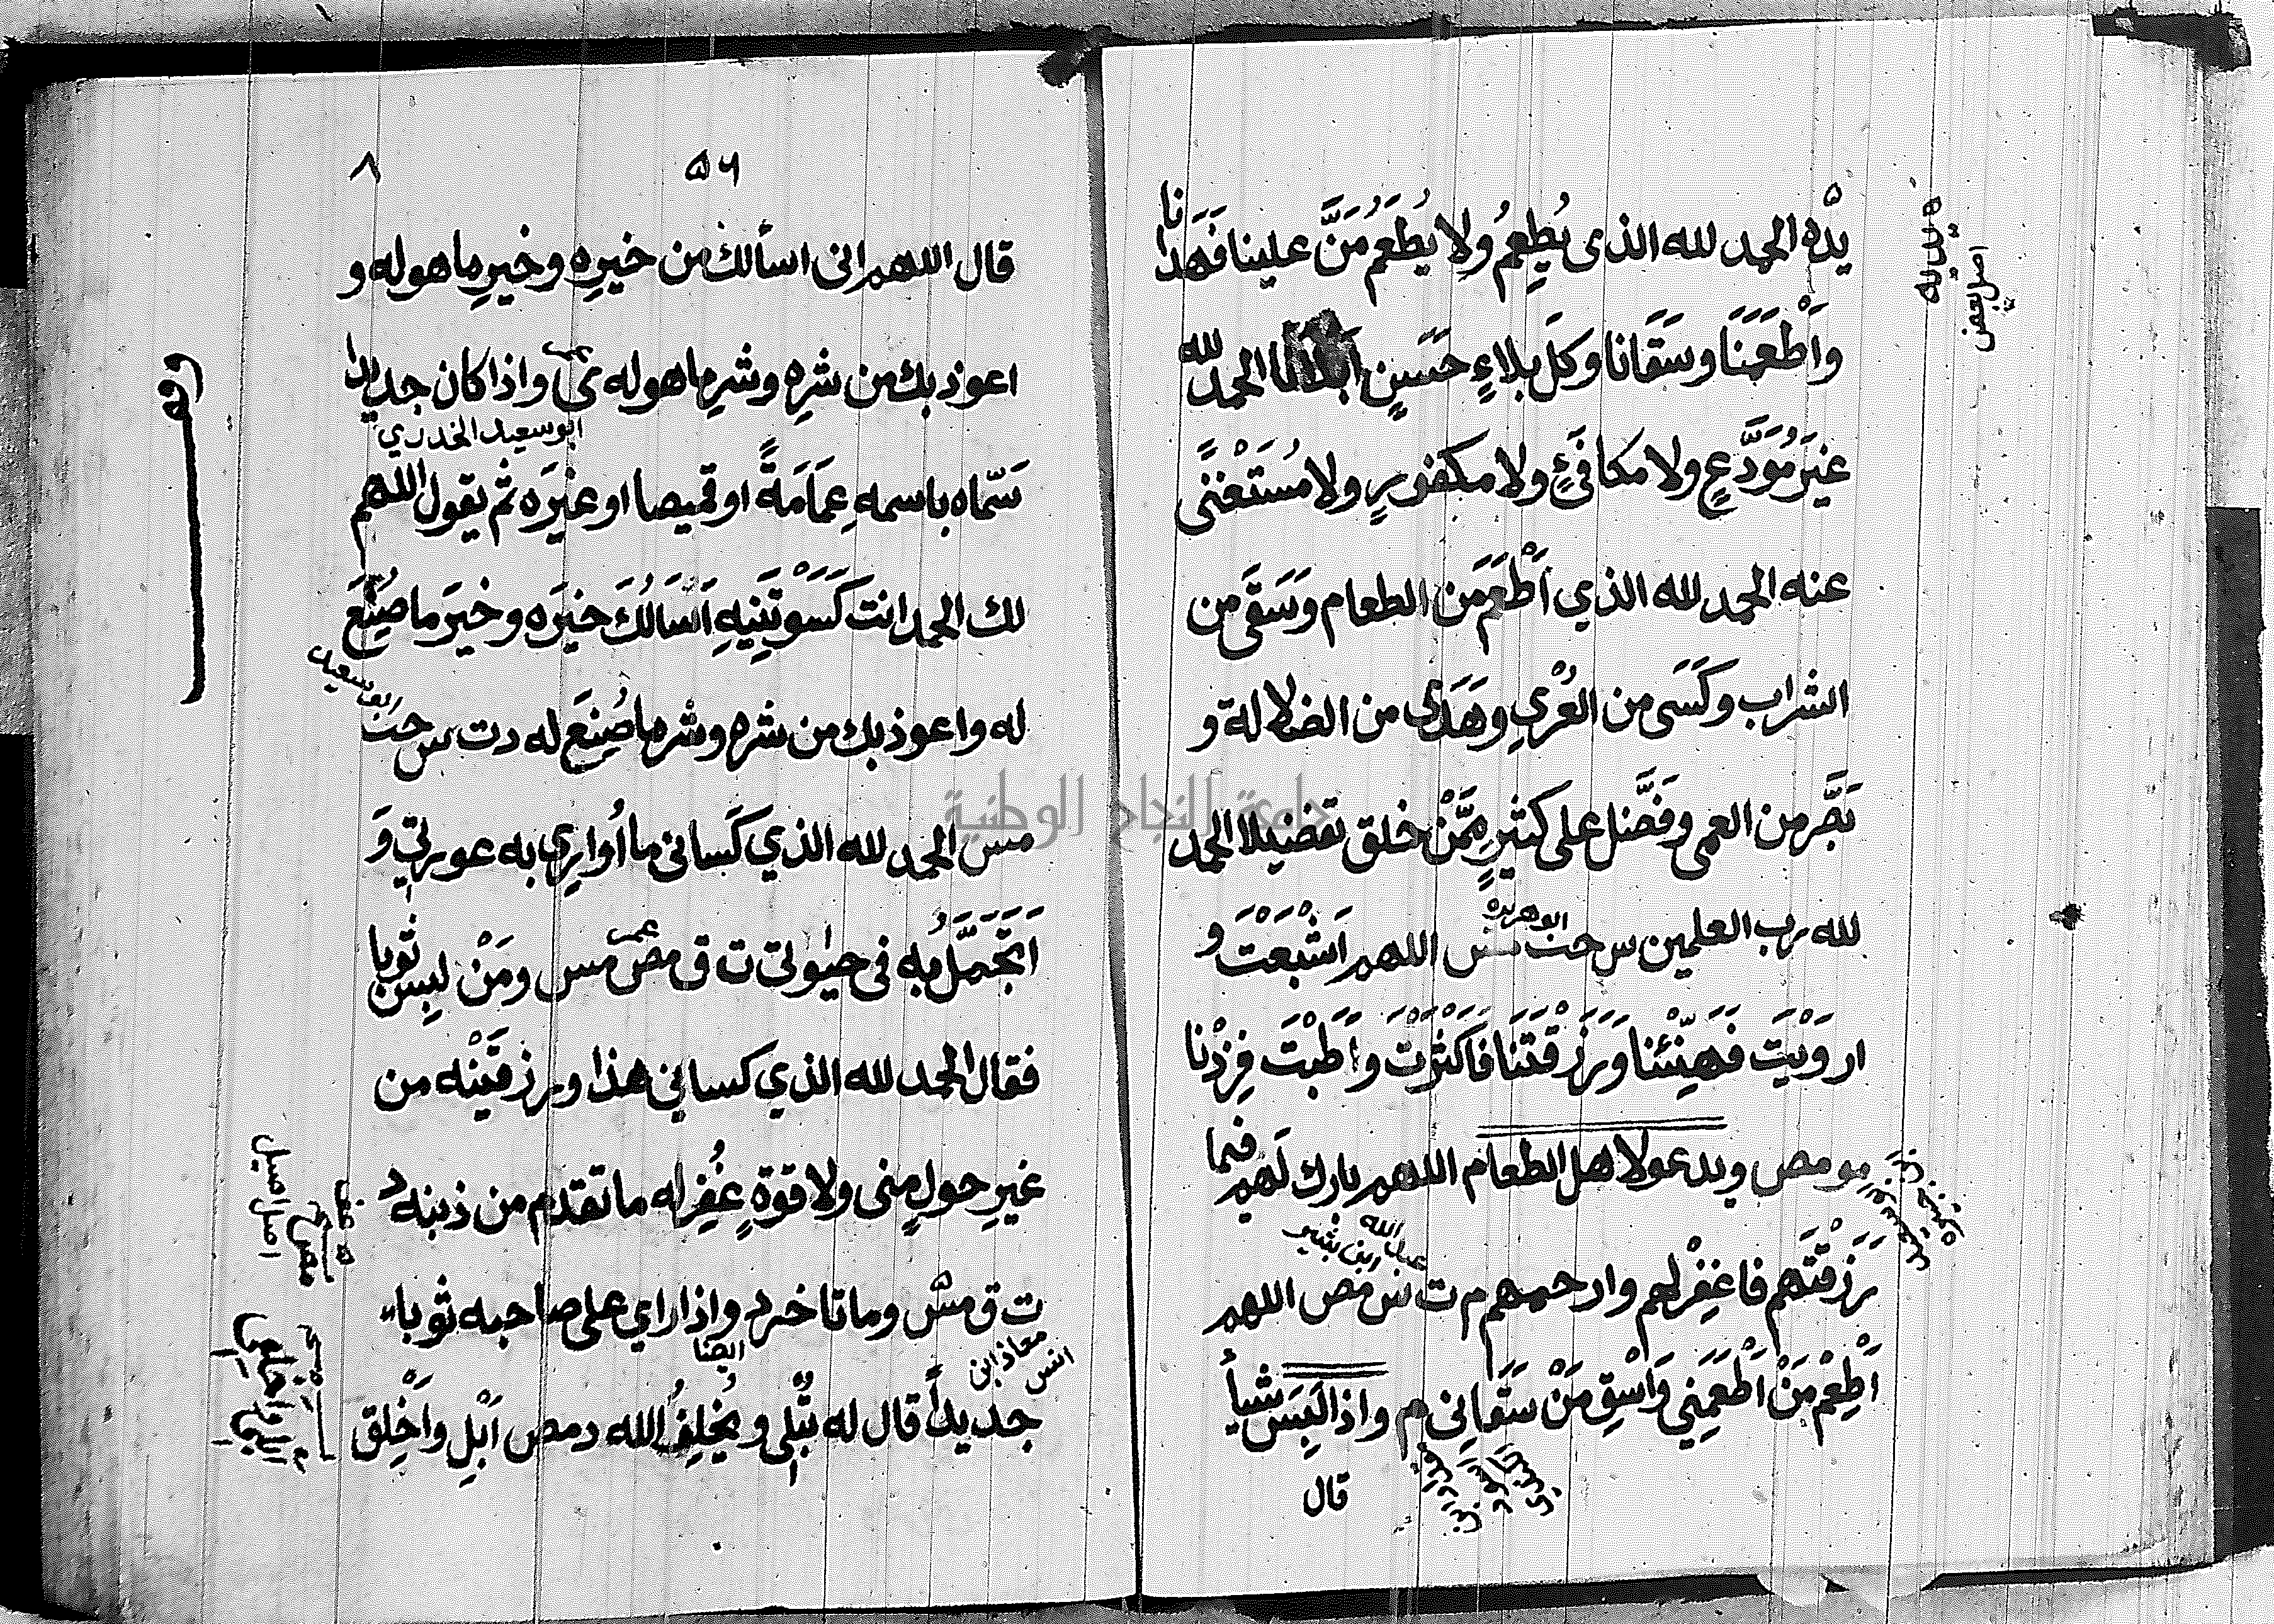 يدْه الحمد لله الذى يُطْعِمُ ولا يُطْعَمُ مَنَّ علينا فَهَدَانا
وَاَطْعَمَنَا وسَقَانا وكلَ بلاءٍ حَسَنٍ اَبْلَانَا الحمد لله
غيرَ مُوَدَّعٍ ولا مكافَئٍ ولا مكفورٍ ولا مُسْتَغْنًى
عنه الحمد لله الذي اَطْعَمَ من الطعام وَسَقَى من
الشراب وكَسَى من العُرْيِ وهَدَى من الضلالة و
بَصَّر من العمى وفَضَّل على كثيرٍ مِمَّنْ خلق تفضيلا الحمد
ابو هريرة
لله رب العلمين س حب مس اللهم اَشْبَعْتَ و
اروَيْتَ فَهَنِّئْنا وَرَزَقْتَنَا فَاَكْثَرْتَ وَاَطَبْتَ فِزِدْنا
مو مص ويدعو لاهل الطعام اللهم بارك لَهم فيما
عبد الله ابن بشير
رَزَقْتَهم فاغفِرْ لهم وارحمهم م ت س مص اللهم
اَطْعِمْ مَنْ اَطْعَمَنِي وَاَسْقِ مَنْ سَقَانِي م واذا لَبِسَ شيأ
قال
اصل لبعض
٥٦
٨
قال اللهم انى اسألك من خيرِه وخيرِ ما هو له و
اعوذ بك من شرِه وشرِ ما هو له ى واذا كان جديدا
ابو سعيد الخدري
سَمّاه باسمهِ عِمَامَةً او قميصا او غيرَه ثم يقول اللهم
لك الحمد انت كَسَوْتَنِيهِ اَسَالُكَ خيرَه وخيرَ ما صُنِعَ
ابو سعيد
له واعوذ بك من شره وشر ما صُنِعَ له د ت س حب
مس الحمد لله الذي كَسَانى ما اُوارِى به عورتي وَ
عمر
اَتَجَمَّلُ به فى حيٰوتى ت ق مص مس ومَنْ لبِسَ ثوبا
فقال الحمد لله الذي كسانِي هذا ورزقَنِيْه من
غيرِ حولٍ منى ولا قوةٍ غُفِرَ له ما تقدم من ذنبه د
ت ق مس وما تاخر د واذا راي على صاحبه ثوبا
معاذ ابن انس
ايضا
جديداً قال له تُبْلى ويُخْلِفُ الله د مص اَبْلِ وَاَخْلِق
جامعة النجاح الوطنية